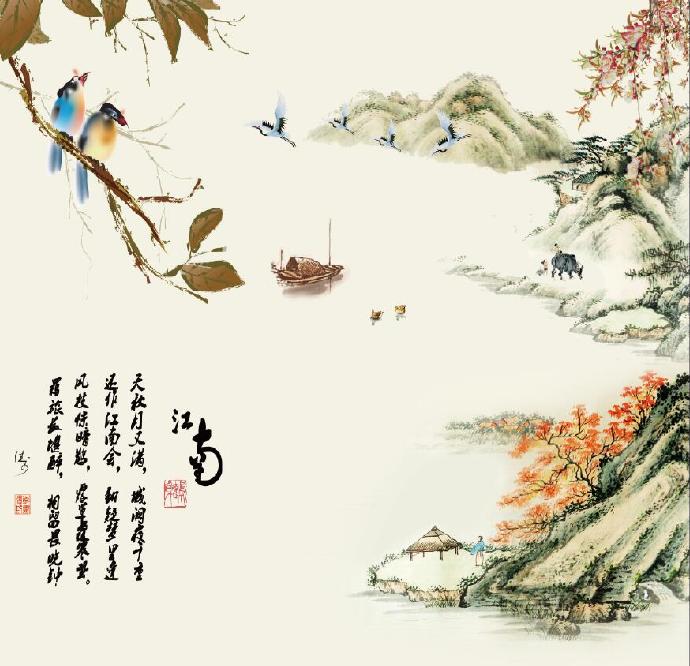 江南
天秋月又满，城阙夜千重
还作江南会，翻疑梦里逢
风枝惊暗鹊，露草覆寒虫。
羁旅长堪醉，相留畏晓钟